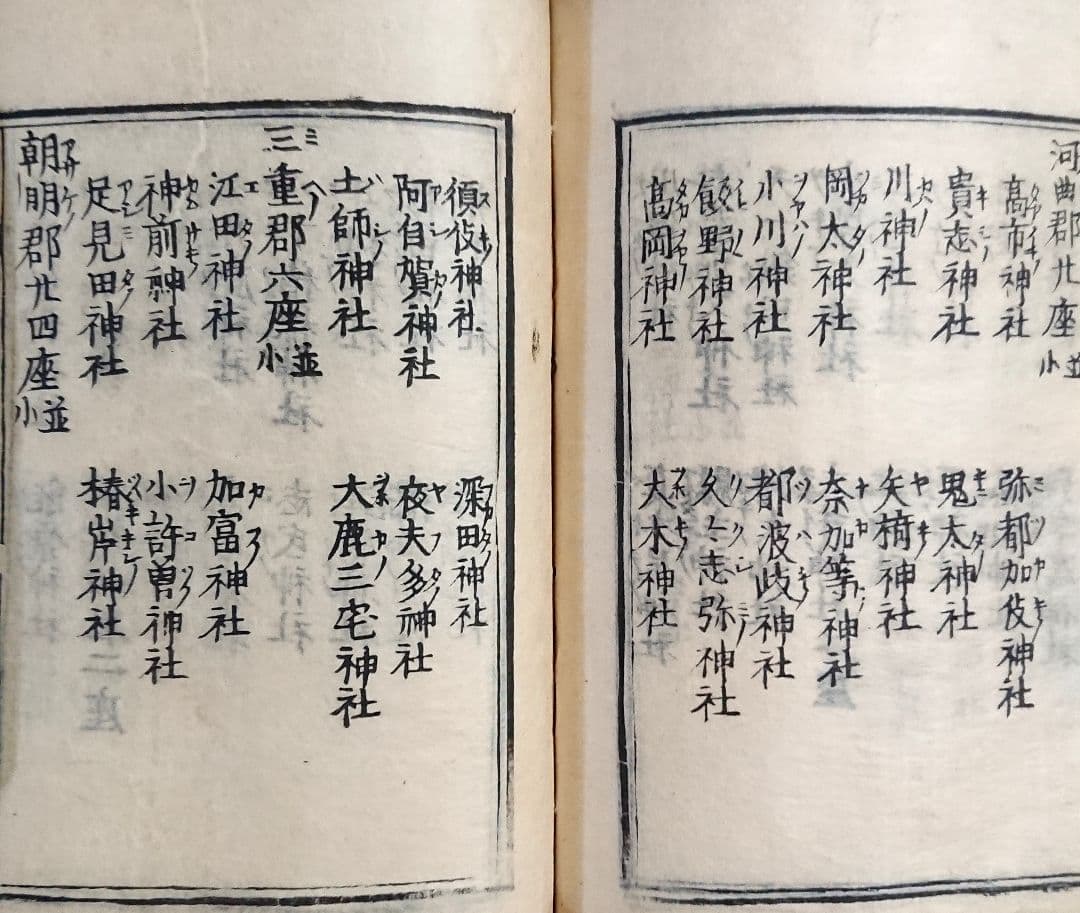 河曲郡廿座 並小
髙市神社 弥都加伎神社
貴志神社 鬼太神社
川神社 矢椅神社
岡太神社 奈加等神社
小川神社 都波岐神社
飯野神社 久々志弥神社
髙岡神社 大木神社
須伎神社 深田神社
阿自賀神社 夜夫多神社
土師神社 大鹿三宅神社
三重郡六座 並小
江田神社 加富神社
神前神社 小許曽神社
足見田神社 椿岸神社
朝明郡廿四座 並小